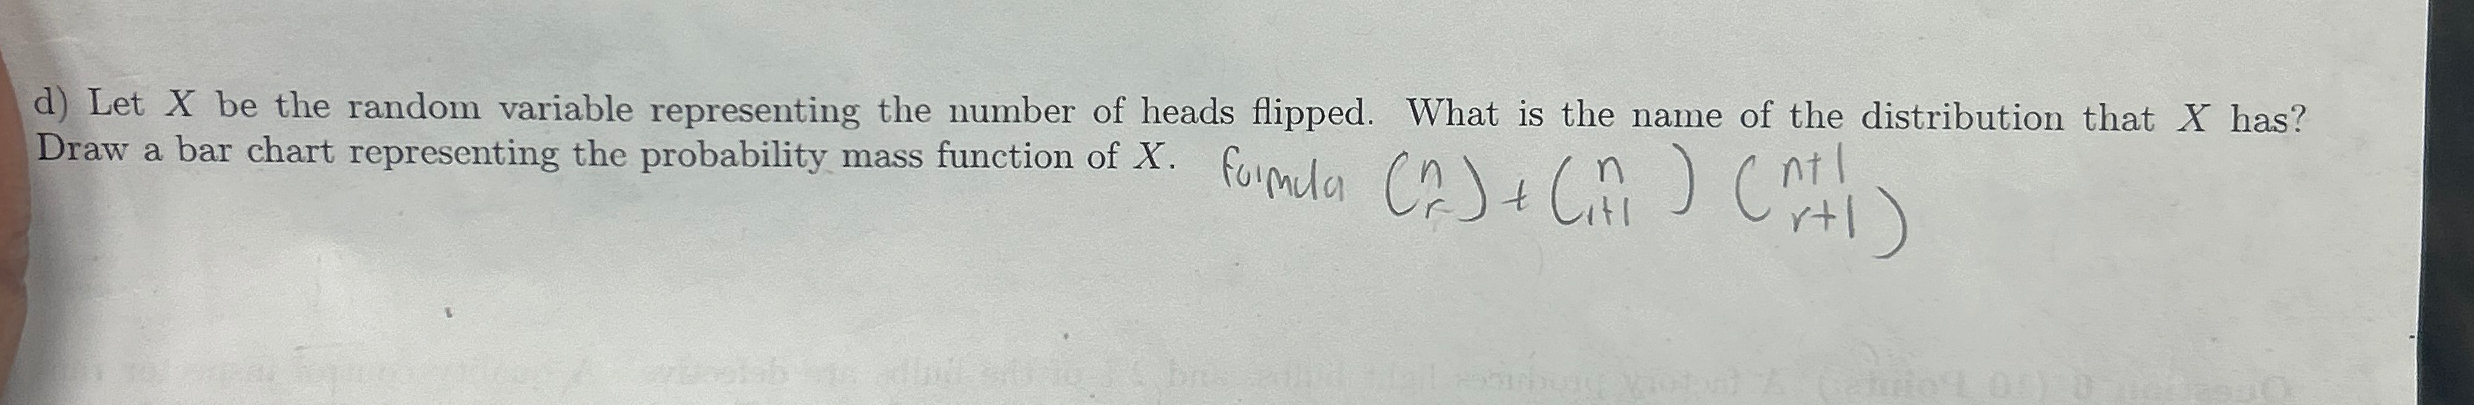 d) Let X be the random variable representing the number of heads flipped. What is the name of the distribution that X has?
Draw a bar chart representing the probability mass function of X. formula (n r) + (n r+1) (n+1 r+1)